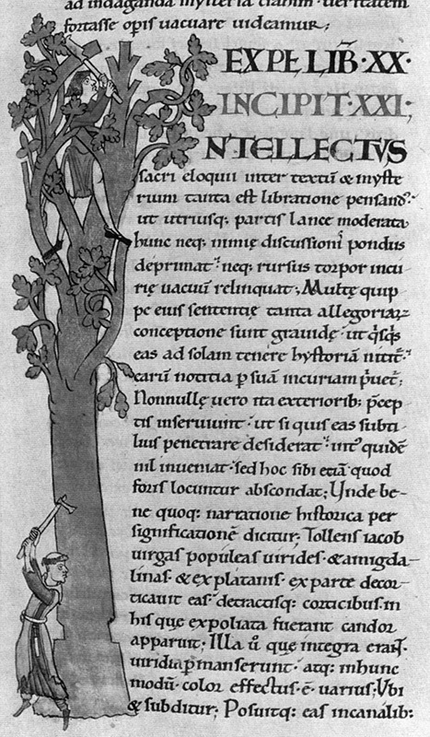 ad indaganda mysteria trahim. veritatem
fortasse opis vacuare videamur;
EXPL LIB̅·XX·
INCIPIT·XXI;
NTELLECTVS
sacri eloquii inter textū & myste
rium tanta est libratione pensand᷒.
ut utriusq; partis lance moderata
hunc neq; nimię discussionī pondus
deprimat. neq; rursus torpor incu
rię vacuū relinquat; Multę quip
pe eius sententię tanta allegoriaꝝ
conceptione sunt gravidę. ut q̇sq̇s
eas ad solam tenere hystoriā nitit᷑.
earū notitia p suā incuriam p̄vet᷑;
Nonnullę vero ita exteriorib; p̄cep
tis inserviunt. ut si quis eas subti
lius penetrare desiderat. int᷒ quidē
nil inveniat. sed hoc sibi etiā quod
foris locuntur abscondat; Unde be
ne quoq; narratione historica per
significationē dicitur; Tollens iacob
virgas populeas virides. & amigda
linas. & ex platanis. ex parte decor
ticavit eas. detractisq; corticibus. in
his que expoliata fuerant candor
apparuit; Illa ů que integra eraṅ.
viridia pmanserunt. atq; in hunc
modū. color effectus. ē. varius; Ubi
& subditur; Posuitq; eas in canalib: